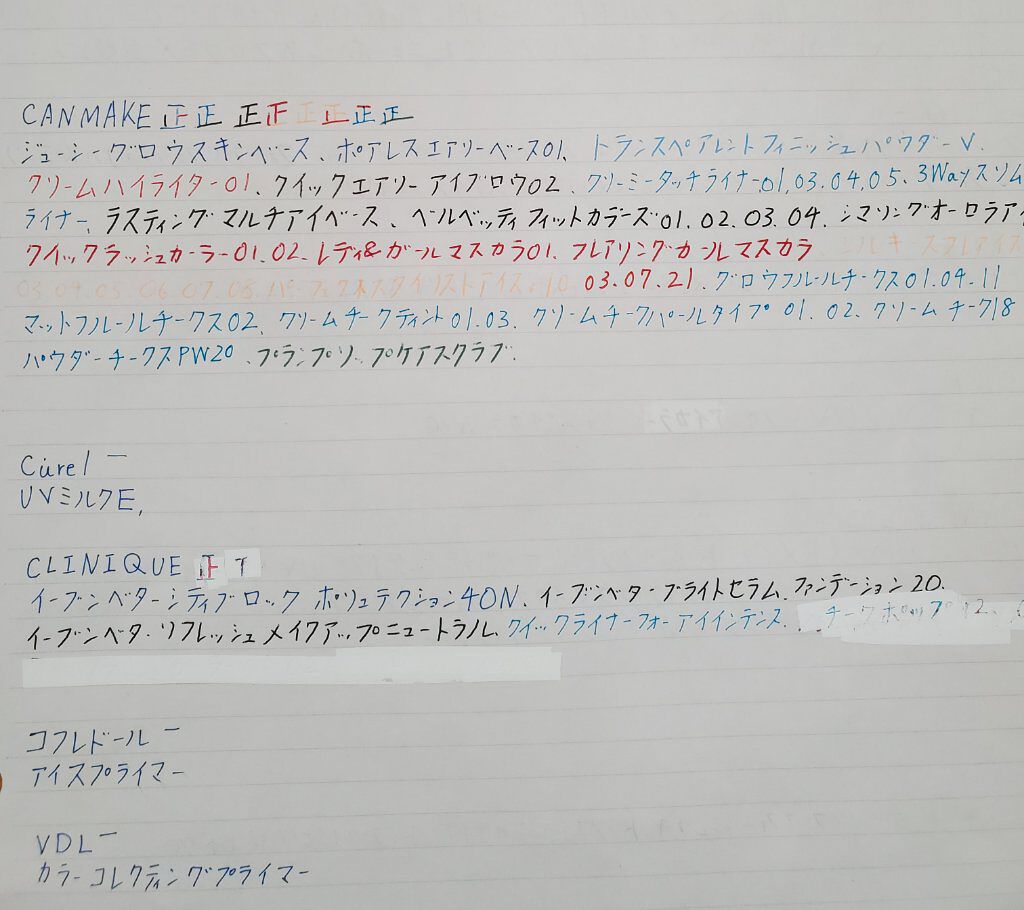 CANMAKE 正正 正正 正正 正正
ジューシーグロウスキンベース、ポアレスエアリーベース01、トランスペアレントフィニッシュパウダーV.
クリームハイライター01、クイックエアリーアイブロウ02、クリーミータッチライナー01,03.04,05、3Wayスリム
ライナー、ラスティングマルチアイベース、ベルベッティフィットカラーズ01.02.03.04. シマリングオーロラアイ
クイックラッシュカーラー01.02. レディ&ガールマスカラ01. フレアリングカールマスカラ
03.04.05.06.07.08. 03.07.21. グロウフルールチークス01.04.11
マットフルールチークス02、クリームチークティント01.03、クリームチークパールタイプ01.02、クリームチーク18
パウダーチークスPW20、プランプリップケアスクラブ.
Curel 一
UVミルクE,
CLINIQUE 正 T
イーブンベターシティブロックポリュテクション40N、イーブンベターブライトセラムファンデーション20.
イーブンベターリフレッシュメイクアップニュートラル、クイックライナーフォーアイインテンス. チークポップ12、
コフレドール 一
アイスプライマー
VDL 一
カラーコレクティングプライマー